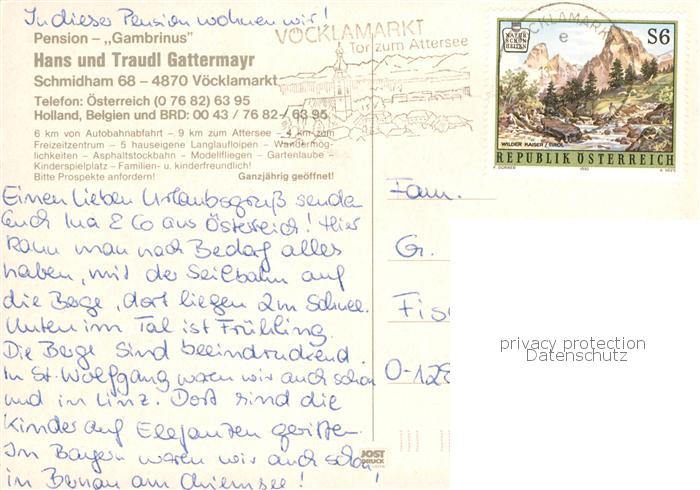 In dieser Pension wohnen wir!
Pension – „Gambrinus"
Hans und Traudl Gattermayr
Schmidham 68 – 4870 Vöcklamarkt
Telefon: Österreich (0 76 82) 63 95
Holland, Belgien und BRD: 00 43 / 76 82 / 63 95
6 km von Autobahnabfahrt – 9 km zum Attersee – 4 km zum
Freizeitzentrum – 5 hauseigene Langlaufloipen – Wandermög-
lichkeiten – Asphaltstockbahn – Modellfliegen – Gartenlaube –
Kinderspielplatz – Familien- u. kinderfreundlich!
Bitte Prospekte anfordern! Ganzjährig geöffnet!
VÖCKLAMARKT
Tor zum Attersee
VÖCKLAMARK
e
NATUR
SCHÖN
HEITEN
S6
WILDER KAISER/TIROL
REPUBLIK ÖSTERREICH
Einen lieben Urlaubsgruß senden
Euch Ina & Co aus Österreich! Hier
kann man nach Bedarf alles
haben, mit der Seilbahn auf
die Berge, dort liegen 2m Schnee.
Unten im Tal ist Frühling.
Die Berge sind beeindruckend.
In St. Wolfgang waren wir auch schon
und in Linz. Dort sind die
Kinder auf Elefanten geritten.
In Bayern waren wir auch schon
in Bernau am Chiemsee!
Fam.
G.
Fis
O-128
JOST
DRUCK
privacy protection
Datenschutz